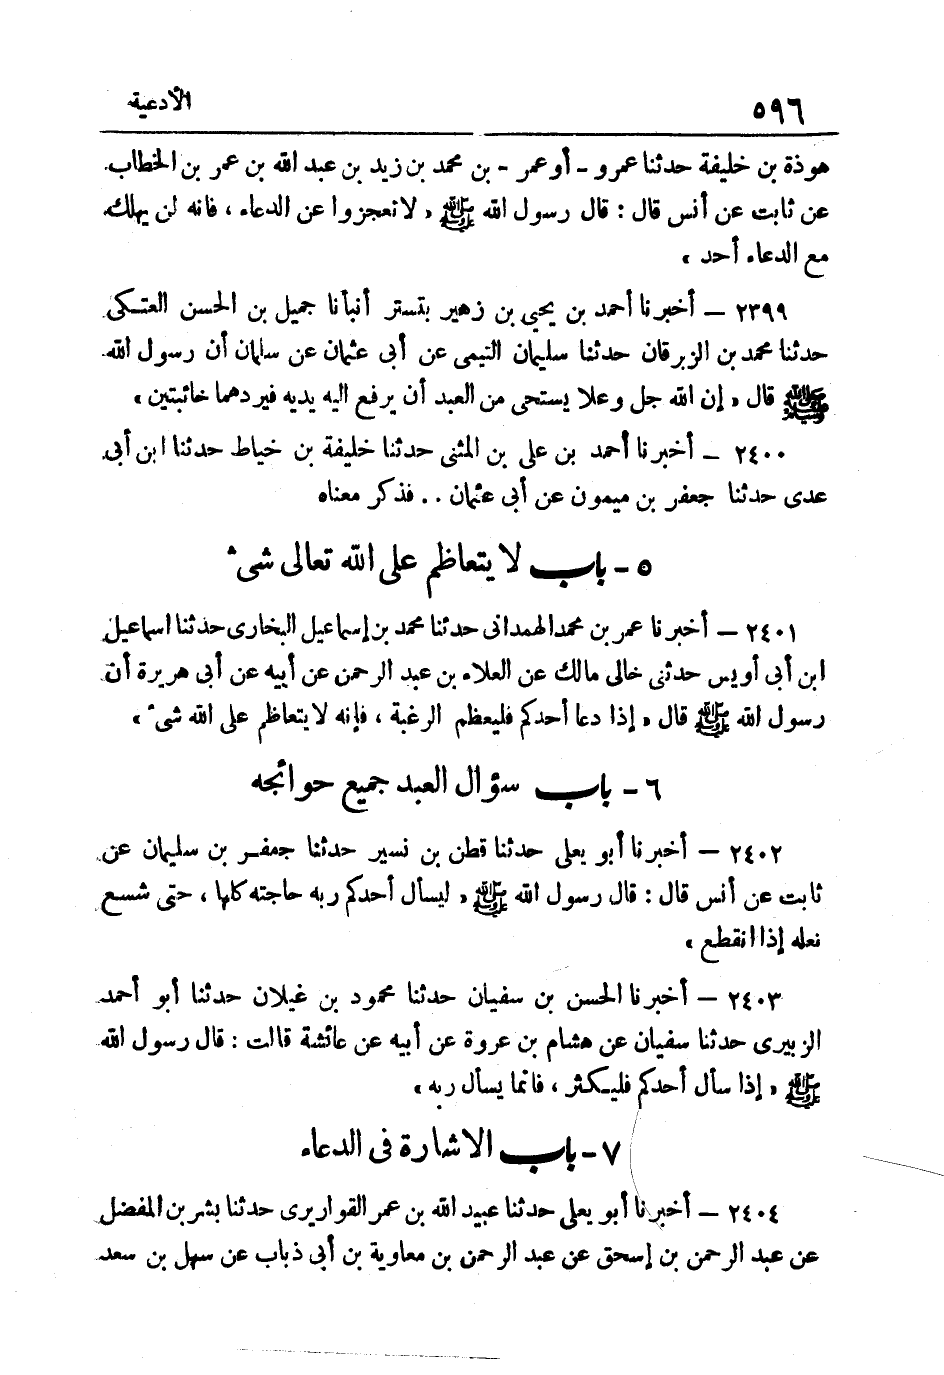 ٥٩٦ الأدعية
هوذة بن خليفة حدثنا عمرو - أو عمر - بن محمد بن زيد بن عبد الله بن عمر بن الخطاب
عن ثابت عن أنس قال : قال رسول الله ﷺ « لا تعجزوا عن الدعاء ، فانه لن يهلك
مع الدعاء أحد »
٢٣٩٩ – أخبرنا أحمد بن يحيى بن زهير بتستر أنبأنا جميل بن الحسن العتكى
حدثنا محمد بن الزبرقان حدثنا سليمان التيمى عن أبى عثمان عن سلمان أن رسول الله
ﷺ قال « إن الله جل وعلا يستحى من العبد أن يرفع اليه يديه فيردهما خائبتين »
٢٤٠٠ – أخبرنا أحمد بن على بن المثنى حدثنا خليفة بن خياط حدثنا ابن أبى
عدى حدثنا جعفر بن ميمون عن أبى عثمان .. فذكر معناه
٥ - باب لا يتعاظم على الله تعالى شىء
٢٤٠١ – أخبرنا عمر بن محمد الهمدانى حدثنا محمد بن إسماعيل البخارى حدثنا اسماعيل
ابن أبى أويس حدثنى خالى مالك عن العلاء بن عبد الرحمن عن أبيه عن أبى هريرة أن
رسول الله ﷺ قال « إذا دعا أحدكم فليعظم الرغبة ، فإنه لا يتعاظم على الله شىء »
٦ - باب سؤال العبد جميع حوائجه
٢٤٠٢ – أخبرنا أبو يعلى حدثنا قطن بن نسير حدثنا جعفر بن سليمان عن
ثابت عن أنس قال : قال رسول الله ﷺ « ليسأل أحدكم ربه حاجته كلها ، حتى شسع
نعله إذا انقطع »
٢٤٠٣ – أخبرنا الحسن بن سفيان حدثنا محمود بن غيلان حدثنا أبو أحمد
الزبيرى حدثنا سفيان عن هشام بن عروة عن أبيه عن عائشة قالت : قال رسول الله
ﷺ « إذا سأل أحدكم فليكثر ، فانما يسأل ربه »
٧ - باب الاشارة فى الدعاء
٢٤٠٤ – أخبرنا أبو يعلى حدثنا عبيد الله بن عمر القواريرى حدثنا بشر بن المفضل
عن عبد الرحمن بن إسحق عن عبد الرحمن بن معاوية بن أبى ذباب عن سهل بن سعد